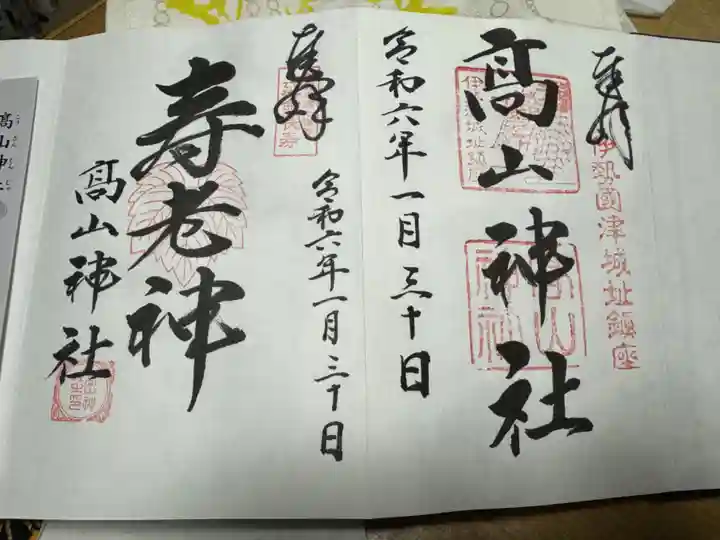 奉拝
伊勢國津城址鎮座
髙山神社
令和六年一月三十日
奉拝
寿老神
髙山神社
令和六年一月三十日